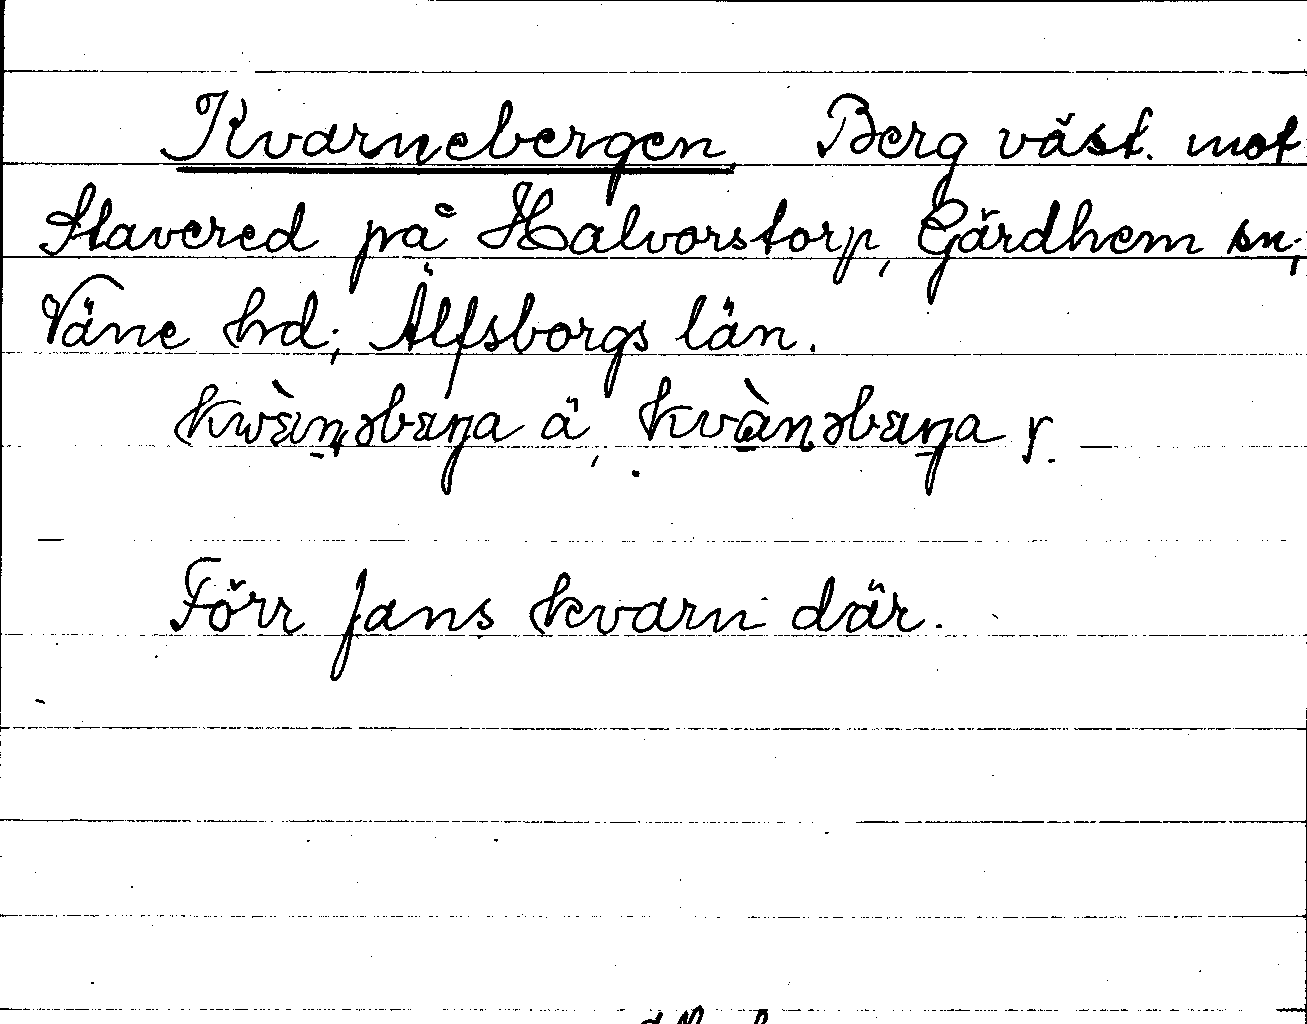 Kvarnebergen. Berg väst. mot
Stavered på Halvorstorp, Gärdhem sn;
Väne hd; Älfsborgs län.
kwàɳəbæŋa ä, kvàɳəbæŋa y.
Förr fans kvarn där.